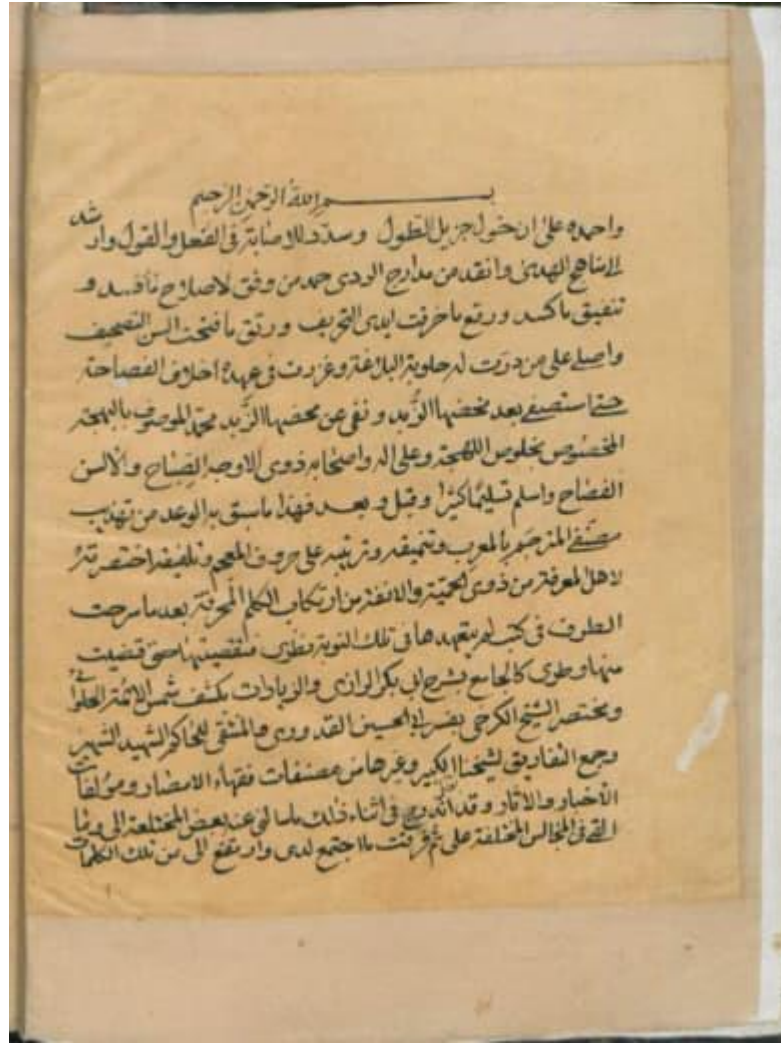 بسم الله الرحمن الرحيم
واحمده على ان خول جزيل الطول وسدد للاصابة فى الفعل والقول وارشد
الى مناهج الهدى وانقذ من مدارج الردى حمد من وفق لاصلاح ما فسد و
تنفيق ما كسد ورقع ما خرقت ايدى التحريف ورتق ما فتحت السن التصحيف
واصلى على من درت له حلوبة البلاغة وغزرت فى عهده اخلاف الفصاحة
حتى استصفى بعد مخضها الزُبد ونفى عن محضها الزَبد محمد الموصوف بالبهجة
المخصوص بخلوص اللهجة وعلى اله واصحابه ذوى الاوجه الصِباح والالسن
الفصاح واسلم تسليمًا كثيرًا وقبل وبعد فهذا ما سبق به الوعد من تهذيب
مصنفى المترجم بالمعرب وتنميقه وترتيبه على حروف المعجم وتلفيقه اختصرته
لاهل المعرفة من ذوى الحمية والانفة من ارتكاب الكلم المحرفة بعد ما سرحت
الطرف فى كتب لم يتعهدها فى تلك النوبة نظرى فتقصيتها حتى قضيت
منها وطرى كالجامع بشرح ابى بكر الرازى والزيادات بكشف شمس الائمة الحلوانى
ومختصر الشيخ الكرخى بتفسير ابى الحسين القدورى والمنتقى للحاكم الشهيد الشهير
وجمع التفاريق لشيخنا الكبير وغيرها من مصنفات فقهاء الامصار ومؤلفات
الاخبار والاثار وقد اندرج فى اثناء ذلك ما سالنى عنه بعض المختلفة الى وما
القى فى المجالس المختلفة على ثم فرقت ما اجتمع لدى وارتفع الى من تلك الكلمات